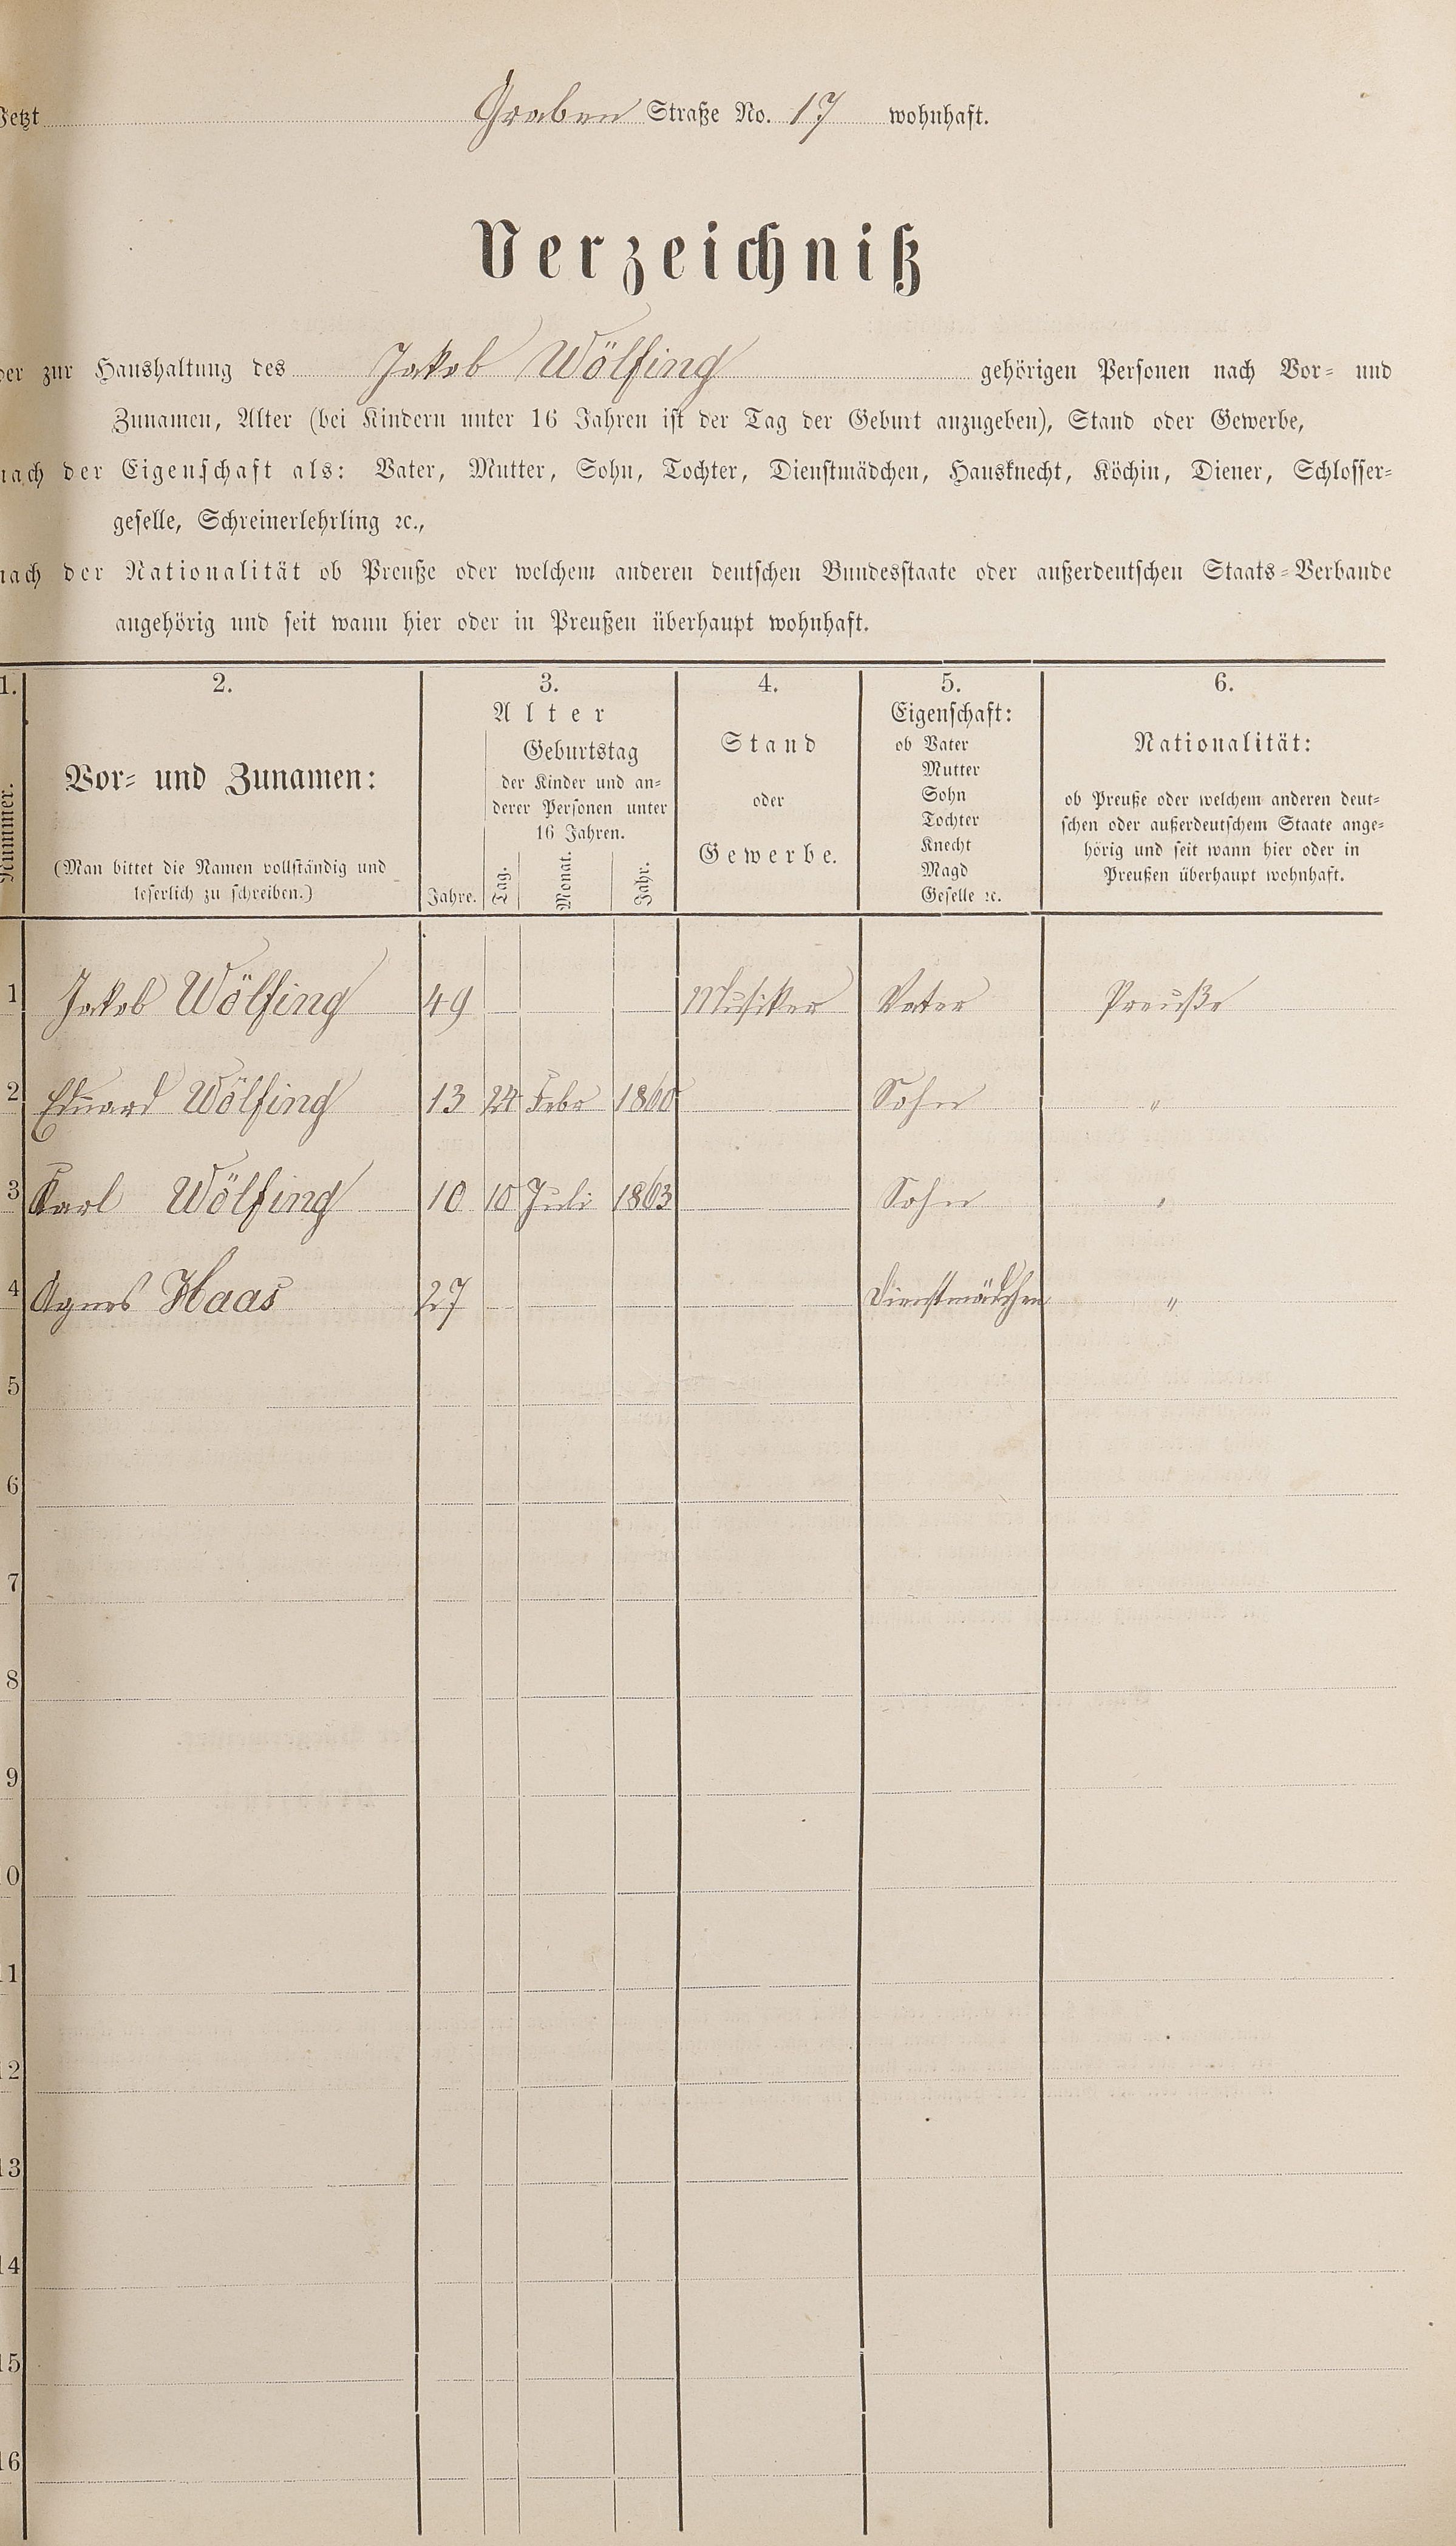 Jetzt Graben Straße No. 17 wohnhaft.
Verzeichniß
der zur Haushaltung des Jakob Wölfing gehörigen Personen nach Vor- und
Zunamen, Alter (bei Kindern unter 16 Jahren ist der Tag der Geburt anzugeben), Stand oder Gewerbe,
nach der Eigenschaft als: Vater, Mutter, Sohn, Tochter, Dienstmädchen, Hausknecht, Köchin, Diener, Schlosser-
geselle, Schreinerlehrling ꝛc.,
nach der Nationalität ob Preuße oder welchem anderen deutschen Bundesstaate oder außerdeutschen Staats-Verbande
angehörig und seit wann hier oder in Preußen überhaupt wohnhaft.
1. 2. 3. 4. 5. 6.
Nummer.
Vor- und Zunamen:
(Man bittet die Namen vollständig und
leserlich zu schreiben.)
Alter
Geburtstag
der Kinder und an-
derer Personen unter
16 Jahren.
Jahre. Tag. Monat. Jahr.
Stand
oder
Gewerbe.
Eigenschaft:
ob Vater
Mutter
Sohn
Tochter
Knecht
Magd
Geselle ꝛc.
Nationalität:
ob Preuße oder welchem anderen deut-
schen oder außerdeutschem Staate ange-
hörig und seit wann hier oder in
Preußen überhaupt wohnhaft.
1 Jakob Wölfing 49 Musiker Vater Preuße
2 Eduard Wölfing 13 24 Febr 1860 Sohn "
3 Karl Wölfing 10 10 Juli 1863 Sohn "
4 Agnes Haas 27 Dienstmädchen "
5
6
7
8
9
10
11
12
13
14
15
16